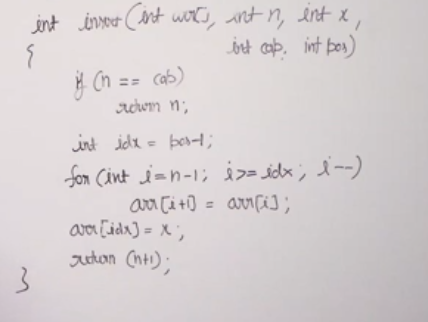 int insert(int arr[], int n, int x,
int cap, int pos)
{
if (n == cap)
return n;
int idx = pos-1;
for (int i=n-1; i>=idx; i--)
arr[i+1] = arr[i];
arr[idx] = x;
return (n+1);
}